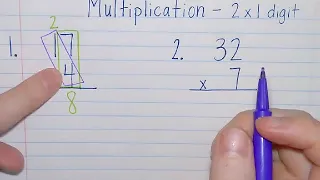 Multiplication - 2 x 1 digit
2
1. 17
4
8
2. 32
x 7